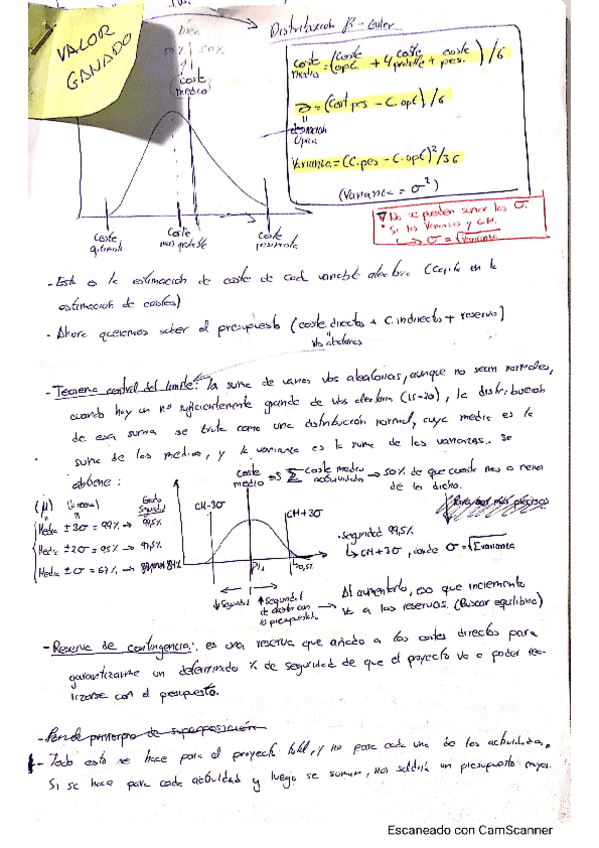 VALOR
GANADO
bien
50% 50%
(coste
medio)
Distribución β-Euler
coste medio = (coste opt. + 4 coste probable + coste pes.) / 6
σ = (Cost pes - C. opt) / 6
desviación
típica
Varianza = (C. pes - C. opt)²/36
(Varianza = σ²)
No se pueden sumar las σ.
Si las varianzas y C.M.
↳ σ = √Varianza
coste
optimista
coste
más probable
coste
pesimista
- Esto es la estimación de coste de cada variable aleatoria (
estimación de costes)
- Ahora queremos saber el presupuesto (coste directos + C. indirectos + reserva)
- Teorema central del límite: la suma de varias vbs aleatorias, aunque no sean normales,
cuando hay un nº suficientemente grande de vbs aleatorias (15-20), la distribución
de esa suma se trata como una distribución normal, cuya media es la
suma de las medias, y la varianza es la suma de las varianzas. Se
obtiene:
coste medio = Σ coste medio actividades → 50% de que cueste más o menos
de lo dicho.
(μ)
Grado
Seguridad
Media ± 3σ = 99% → 99,5%
Media ± 2σ = 95% → 97,5%
Media ± σ = 67% → 84%
CM-3σ
CM+3σ
0,5%
· Seguridad 99,5%
↳ CM + 3σ, donde σ = √Σvarianza
↓ Seguridad
↑ Seguridad
de acabar con
lo presupuestado
Al aumentarlo, eso que incremente
va a las reservas. (Buscar equilibrio)
- Reserva de contingencia: es una reserva que añado a los costes directos para
garantizarme un determinado % de seguridad de que el proyecto va a poder rea-
lizarse con el presupuesto.
principio de superposición
- Todo esto se hace para el proyecto total, y no para cada una de las actividades.
Si se hace para cada actividad y luego se suman, nos saldría un presupuesto mayor.
Escaneado con CamScanner